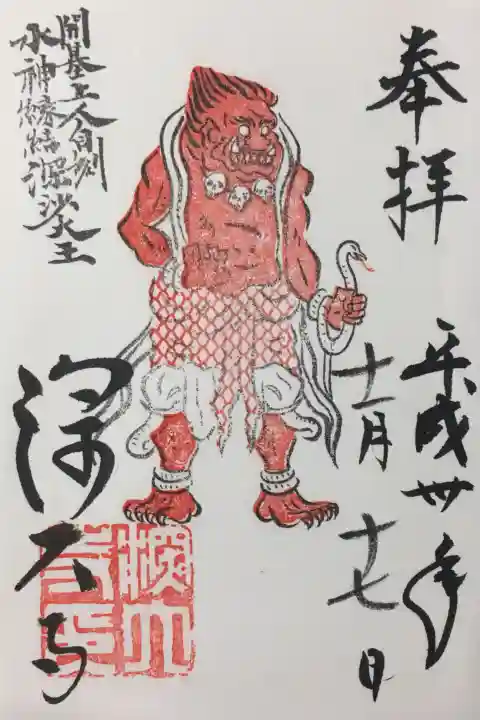 奉拝
平成卅年
十一月十七日
開基上人自刻
水神深沙大王
深大寺